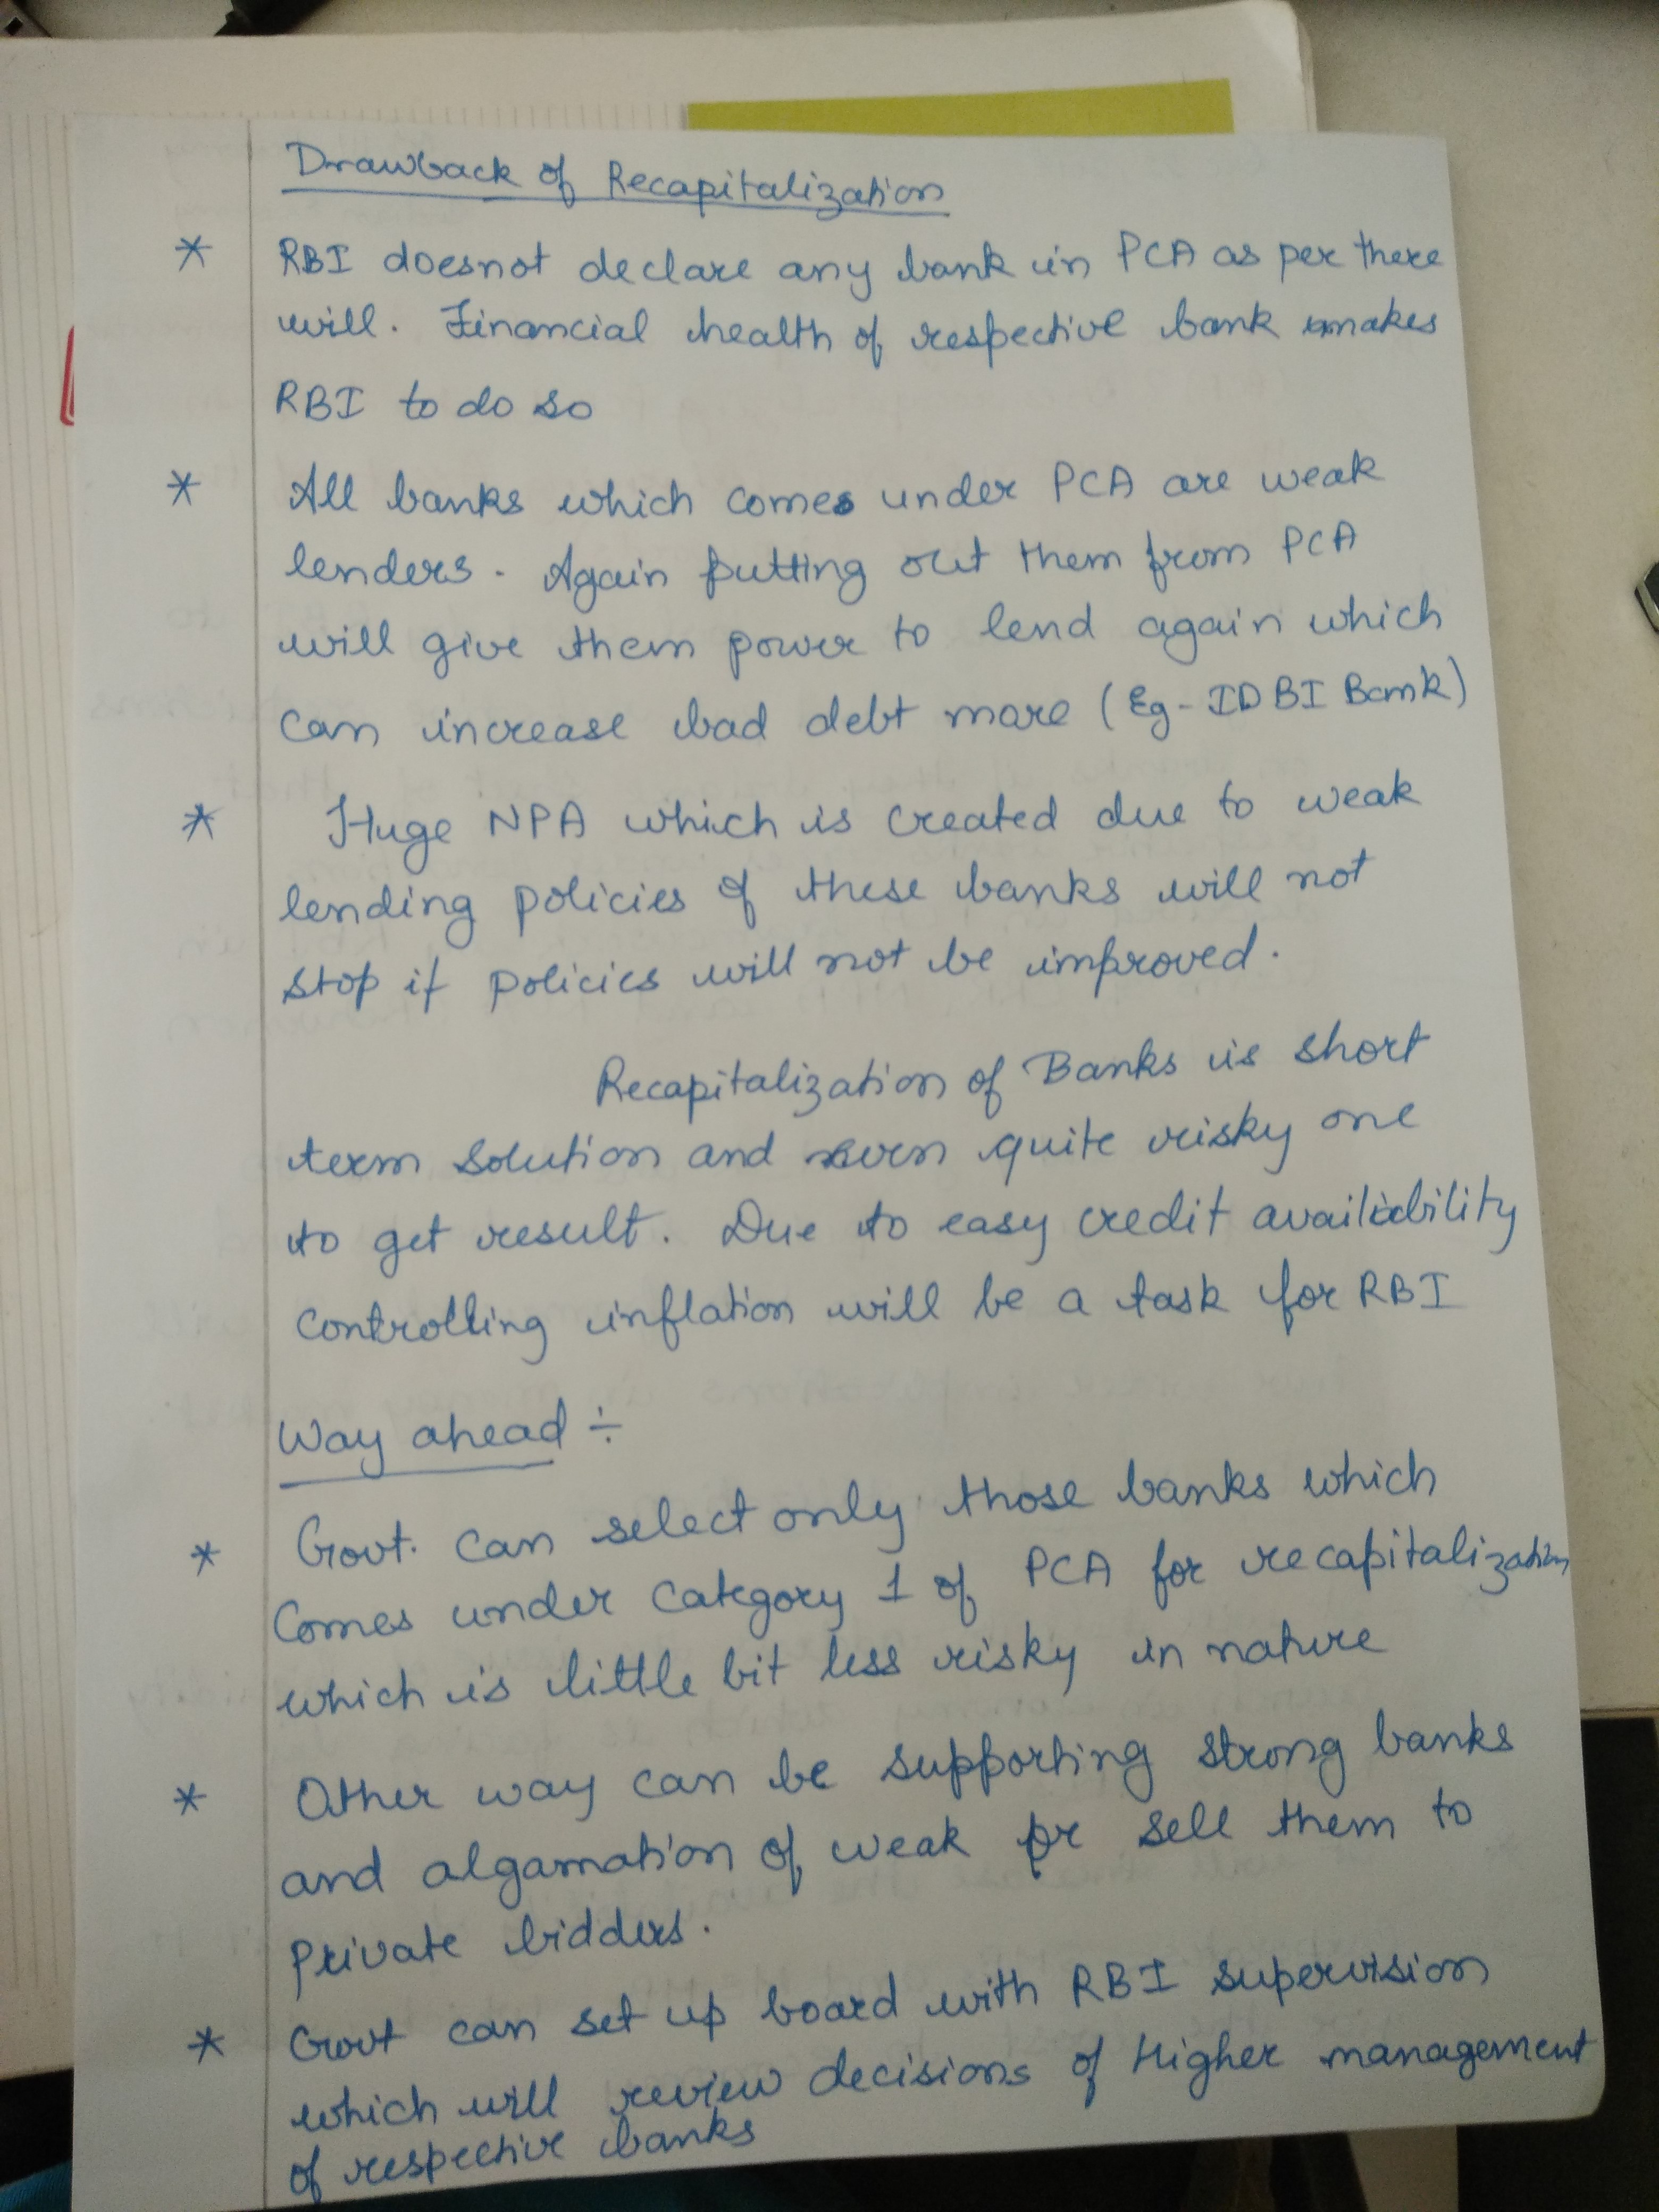 Drawback of Recapitalization
* RBI doesnot declare any bank in PCA as per there
will. Financial health of respective bank makes
RBI to do so
* All banks which comes under PCA are weak
lenders. Again putting out them from PCA
will give them power to lend again which
can increase bad debt more (Eg - IDBI Bank)
* Huge NPA which is created due to weak
lending policies of these banks will not
stop if policies will not be improved.
Recapitalization of Banks is short
term solution and even quite risky one
to get result. Due to easy credit availability
controlling inflation will be a task for RBI
Way ahead ÷
* Govt. can select only those banks which
comes under category 1 of PCA for recapitalization
which is little bit less risky in nature
* Other way can be supporting strong banks
and algamation of weak or sell them to
private bidders.
* Govt can set up board with RBI supervision
which will review decisions of Higher management
of respective banks